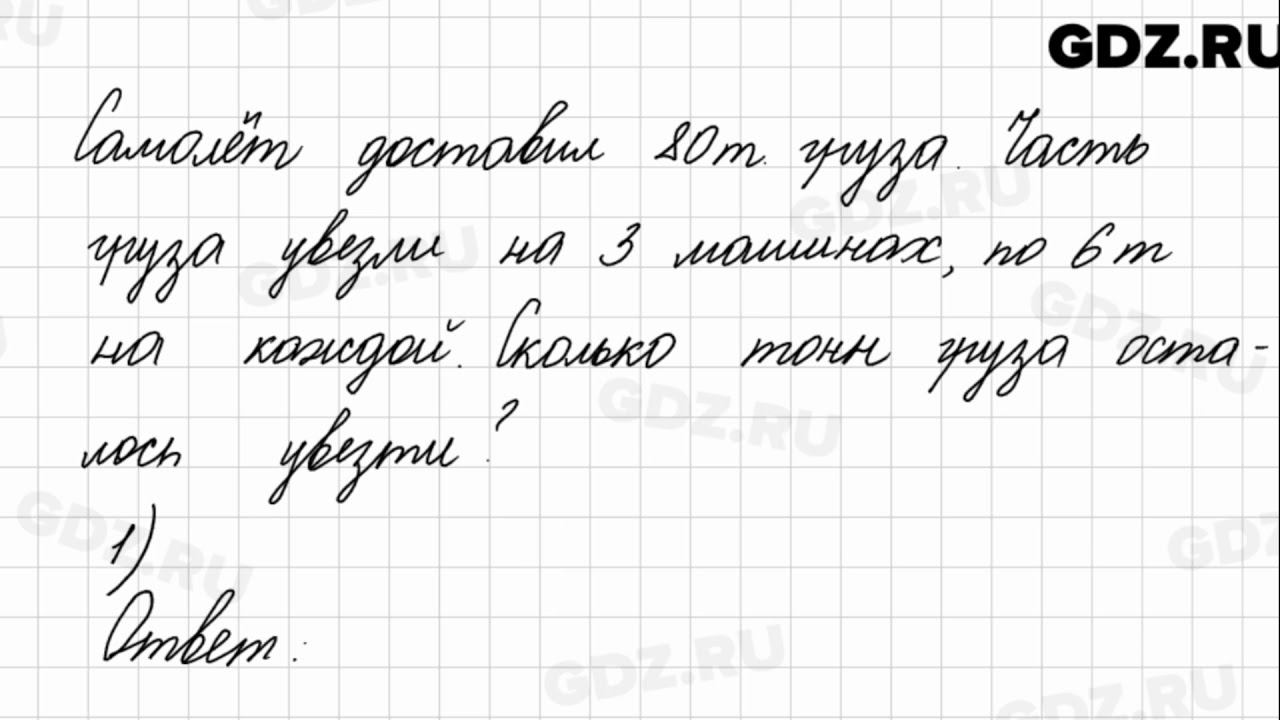 GDZ.RU
Самолёт доставил 80 т. груза. Часть
груза увезли на 3 машинах, по 6 т
на каждой. Сколько тонн груза оста-
лось увезти?
1)
Ответ: